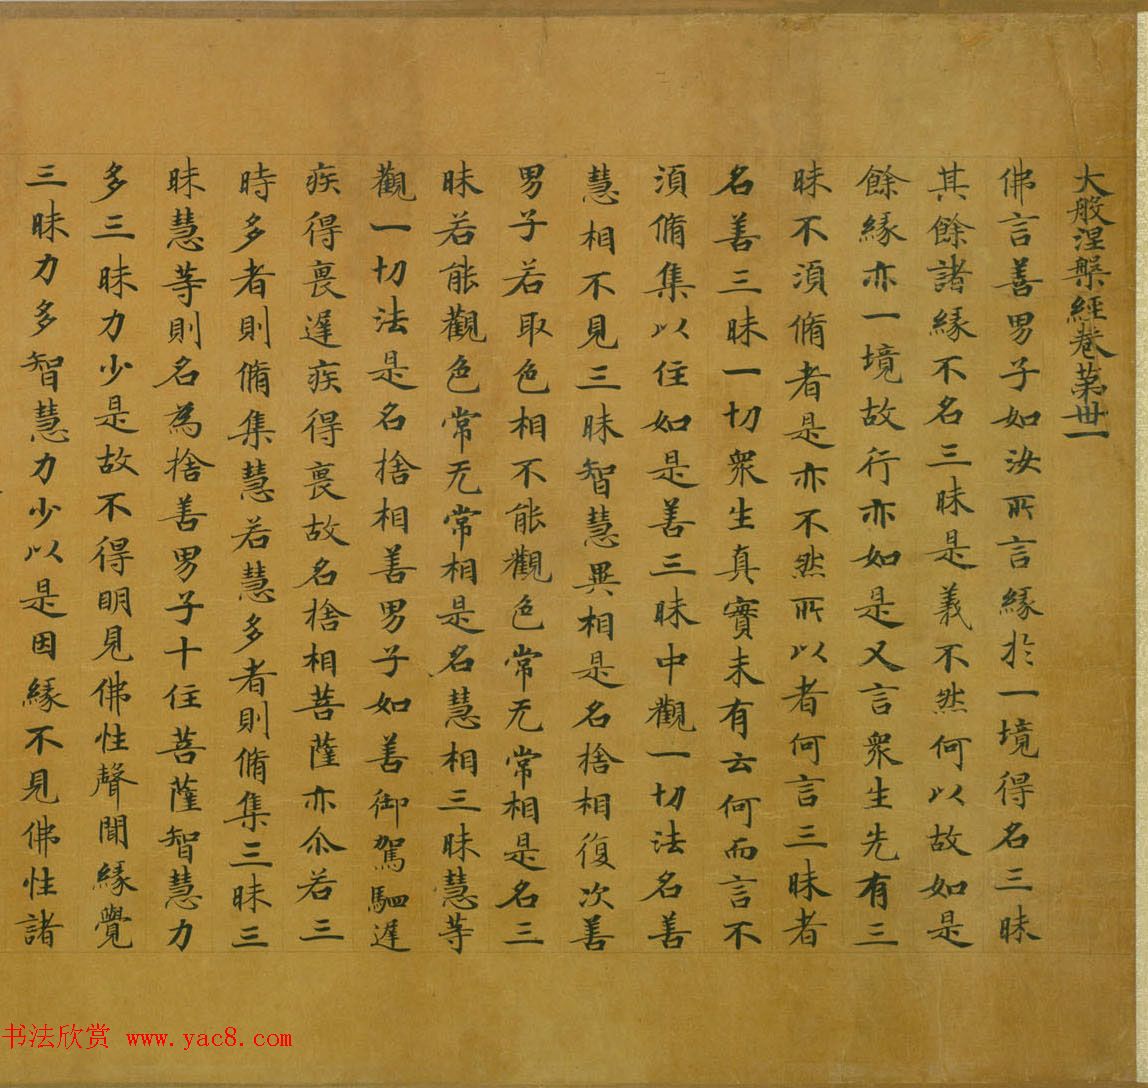 大般涅槃經卷第卅一
佛言善男子如汝所言緣於一境得名三昧
其餘諸緣不名三昧是義不然何以故如是
餘緣亦一境故行亦如是又言衆生先有三
昧不須脩者是亦不然所以者何言三昧者
名善三昧一切衆生真實未有云何而言不
須脩集以住如是善三昧中觀一切法名善
慧相不見三昧智慧異相是名捨相復次善
男子若取色相不能觀色常无常相是名三
昧若能觀色常无常相是名慧相三昧慧等
觀一切法是名捨相善男子如善御駕駟遲
疾得裛遲疾得裛故名捨相菩薩亦尒若三
時多者則脩集慧若慧多者則脩集三昧三
昧慧等則名為捨善男子十住菩薩智慧力
多三昧力少是故不得明見佛性聲聞緣覺
三昧力多智慧力少以是因緣不見佛性諸
书法欣赏 www.yac8.com